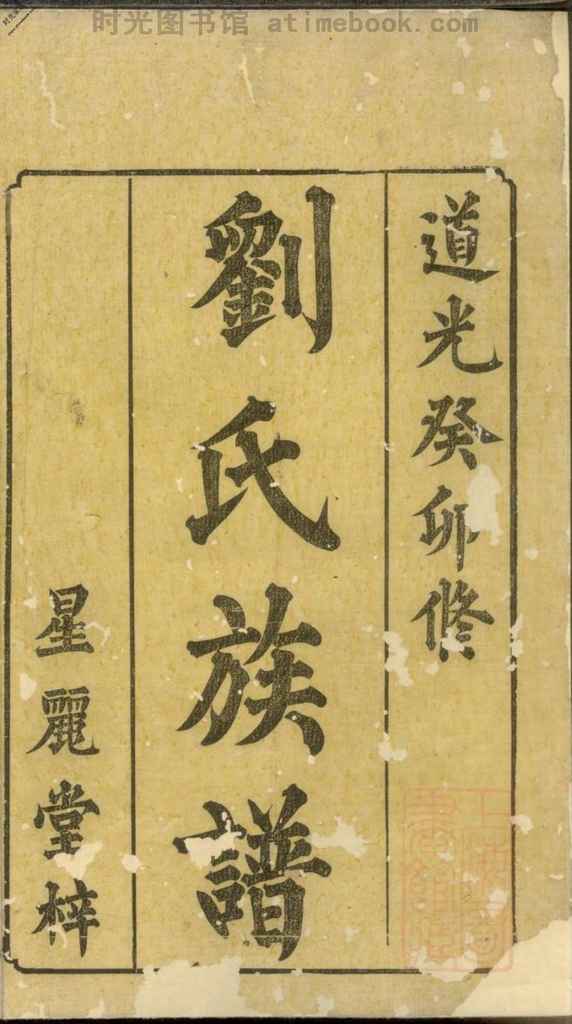 时光图书馆 atimebook.com
道光癸卯修
劉氏族譜
星麗堂梓